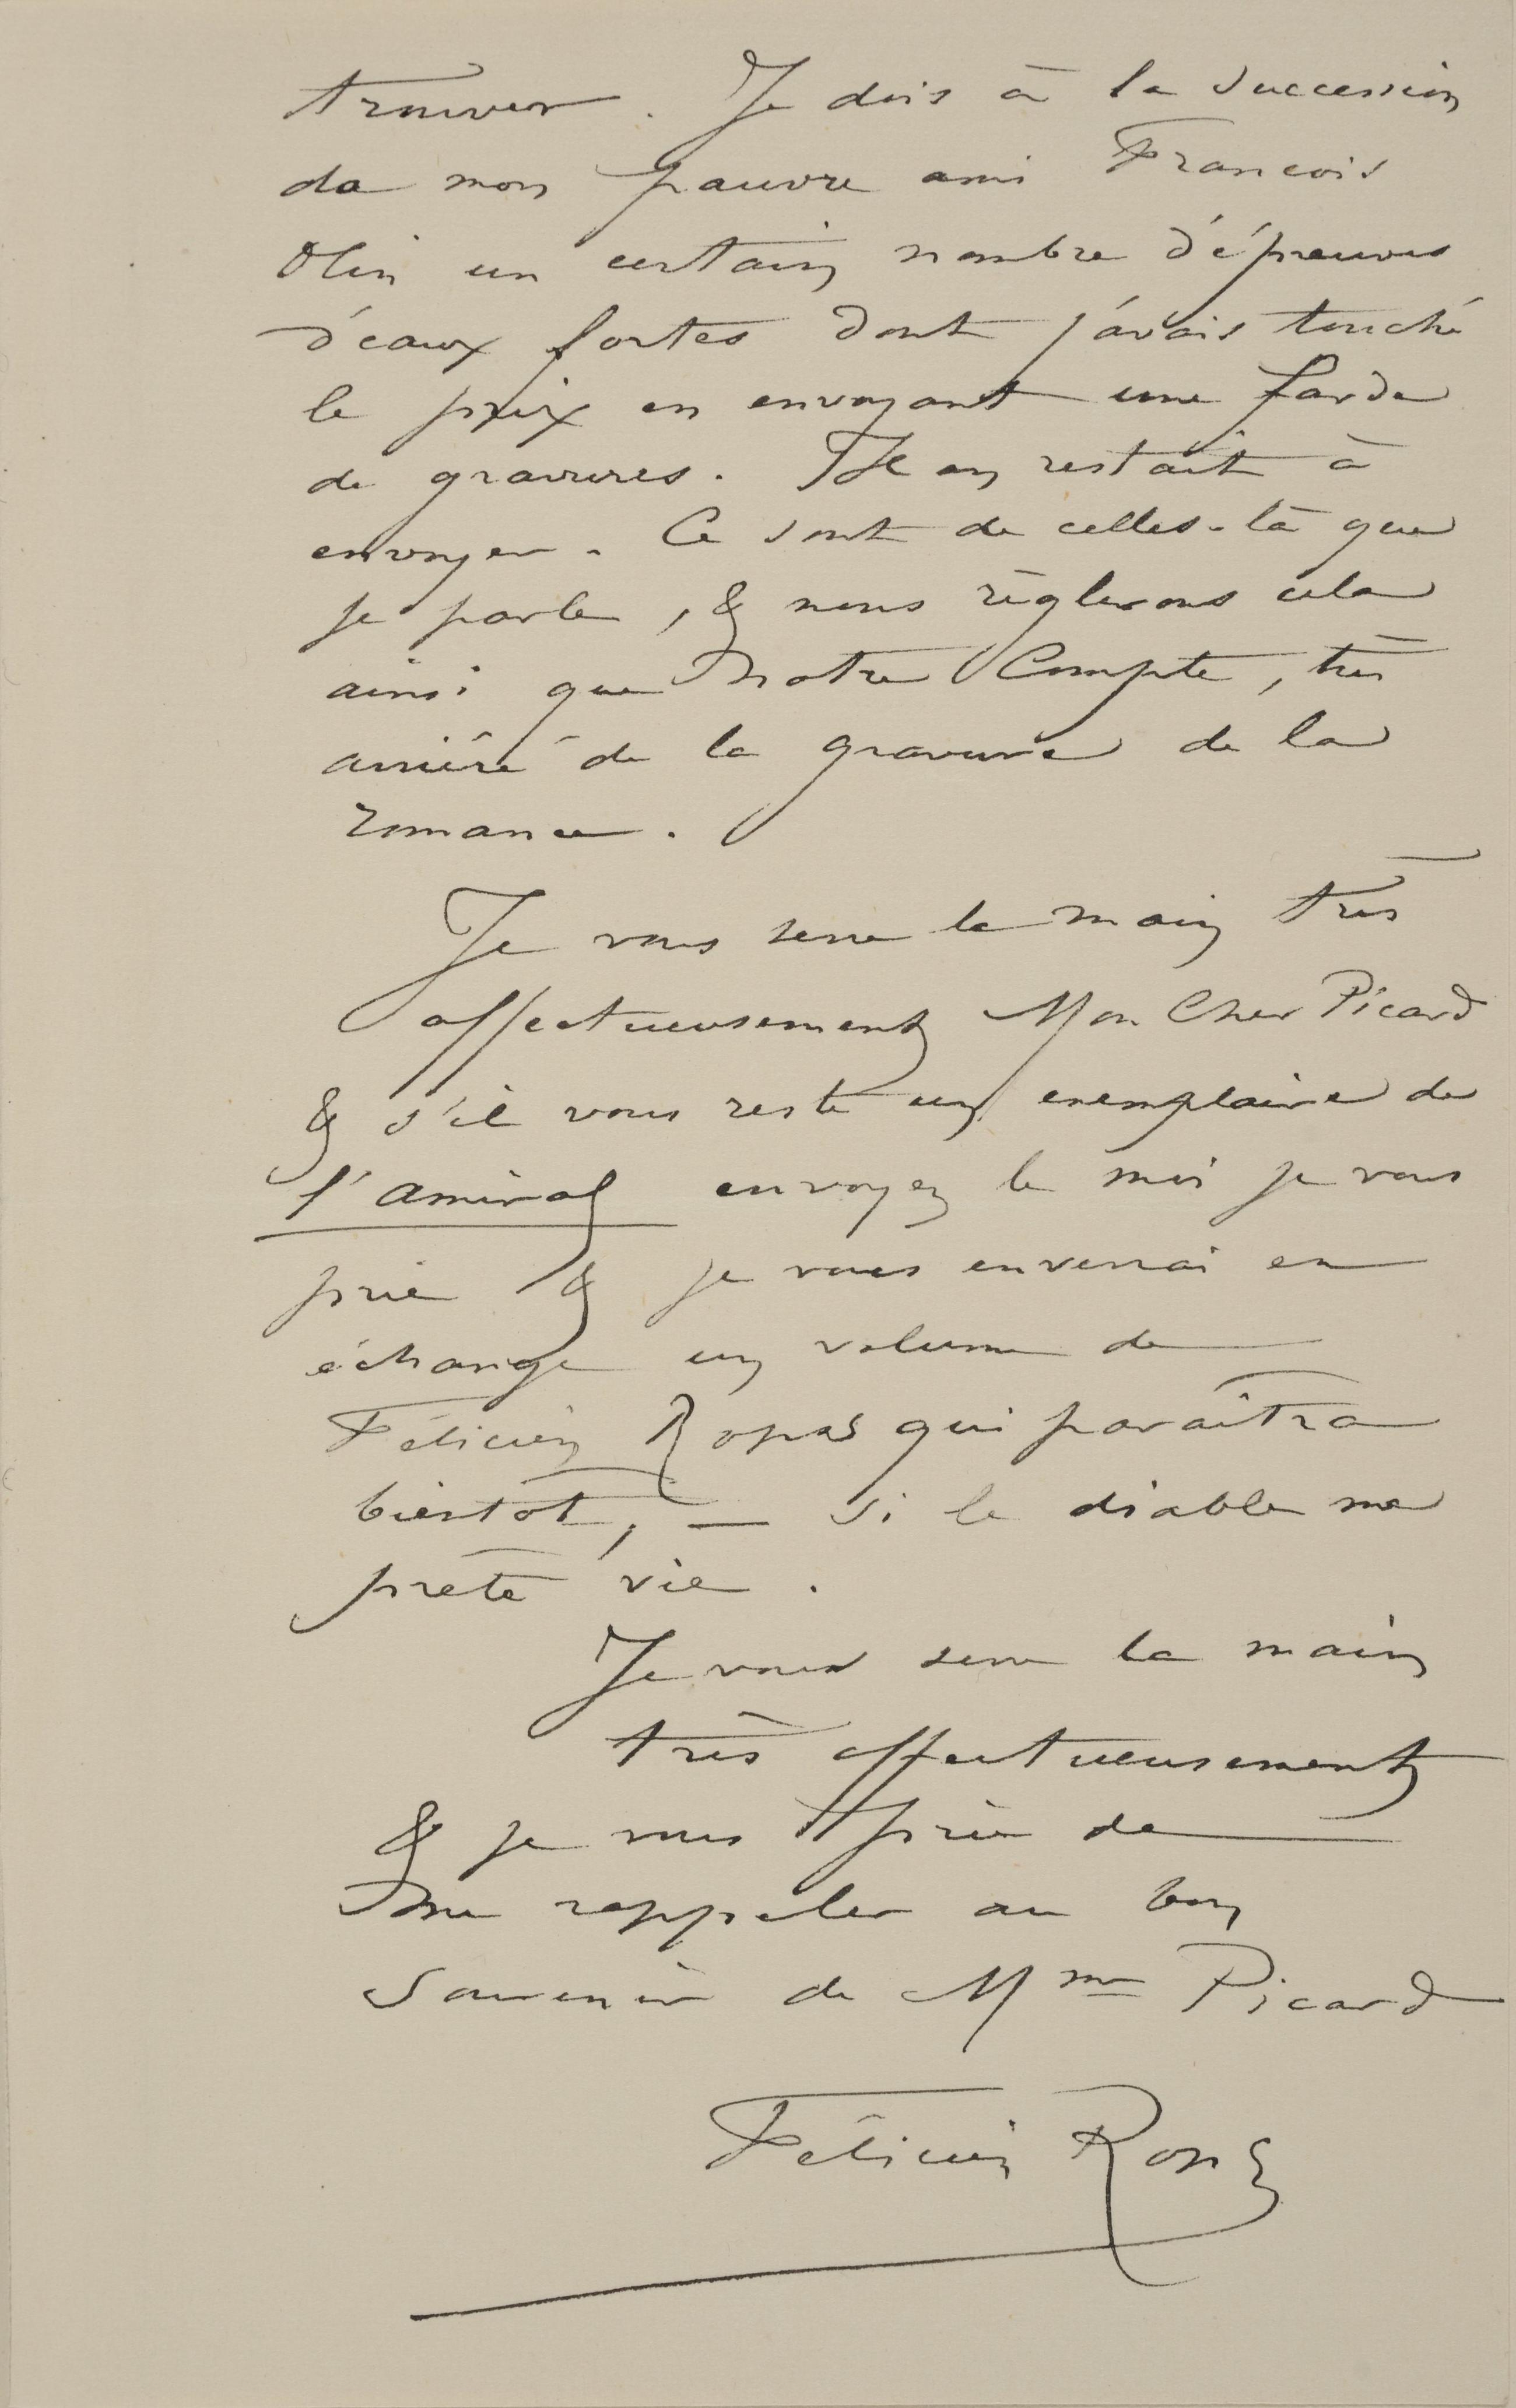 trouver. Je dois à la succession
de mon pauvre ami François
Olin un certain nombre d'épreuves
d'eaux fortes dont j'avais touché
le prix en envoyant une farde
de gravures. Il en restait à
envoyer. Ce sont de celles-là que
je parle, & nous règlerons cela
ainsi que Notre Compte, très
arriéré de la gravure de la
romance.
Je vous serre la main très
affectueusement Mon Cher Picard
& s'il vous reste un exemplaire de
l'amiral envoyez le moi je vous
prie & je vous enverrai en
échange un volume de
Félicien Rops qui paraîtra
bientôt, — si le diable me
prête vie.
Je vous serre la main
très affectueusement
& je vous prie de
me rappeler au bon
souvenir de Mme Picard
Félicien Rops